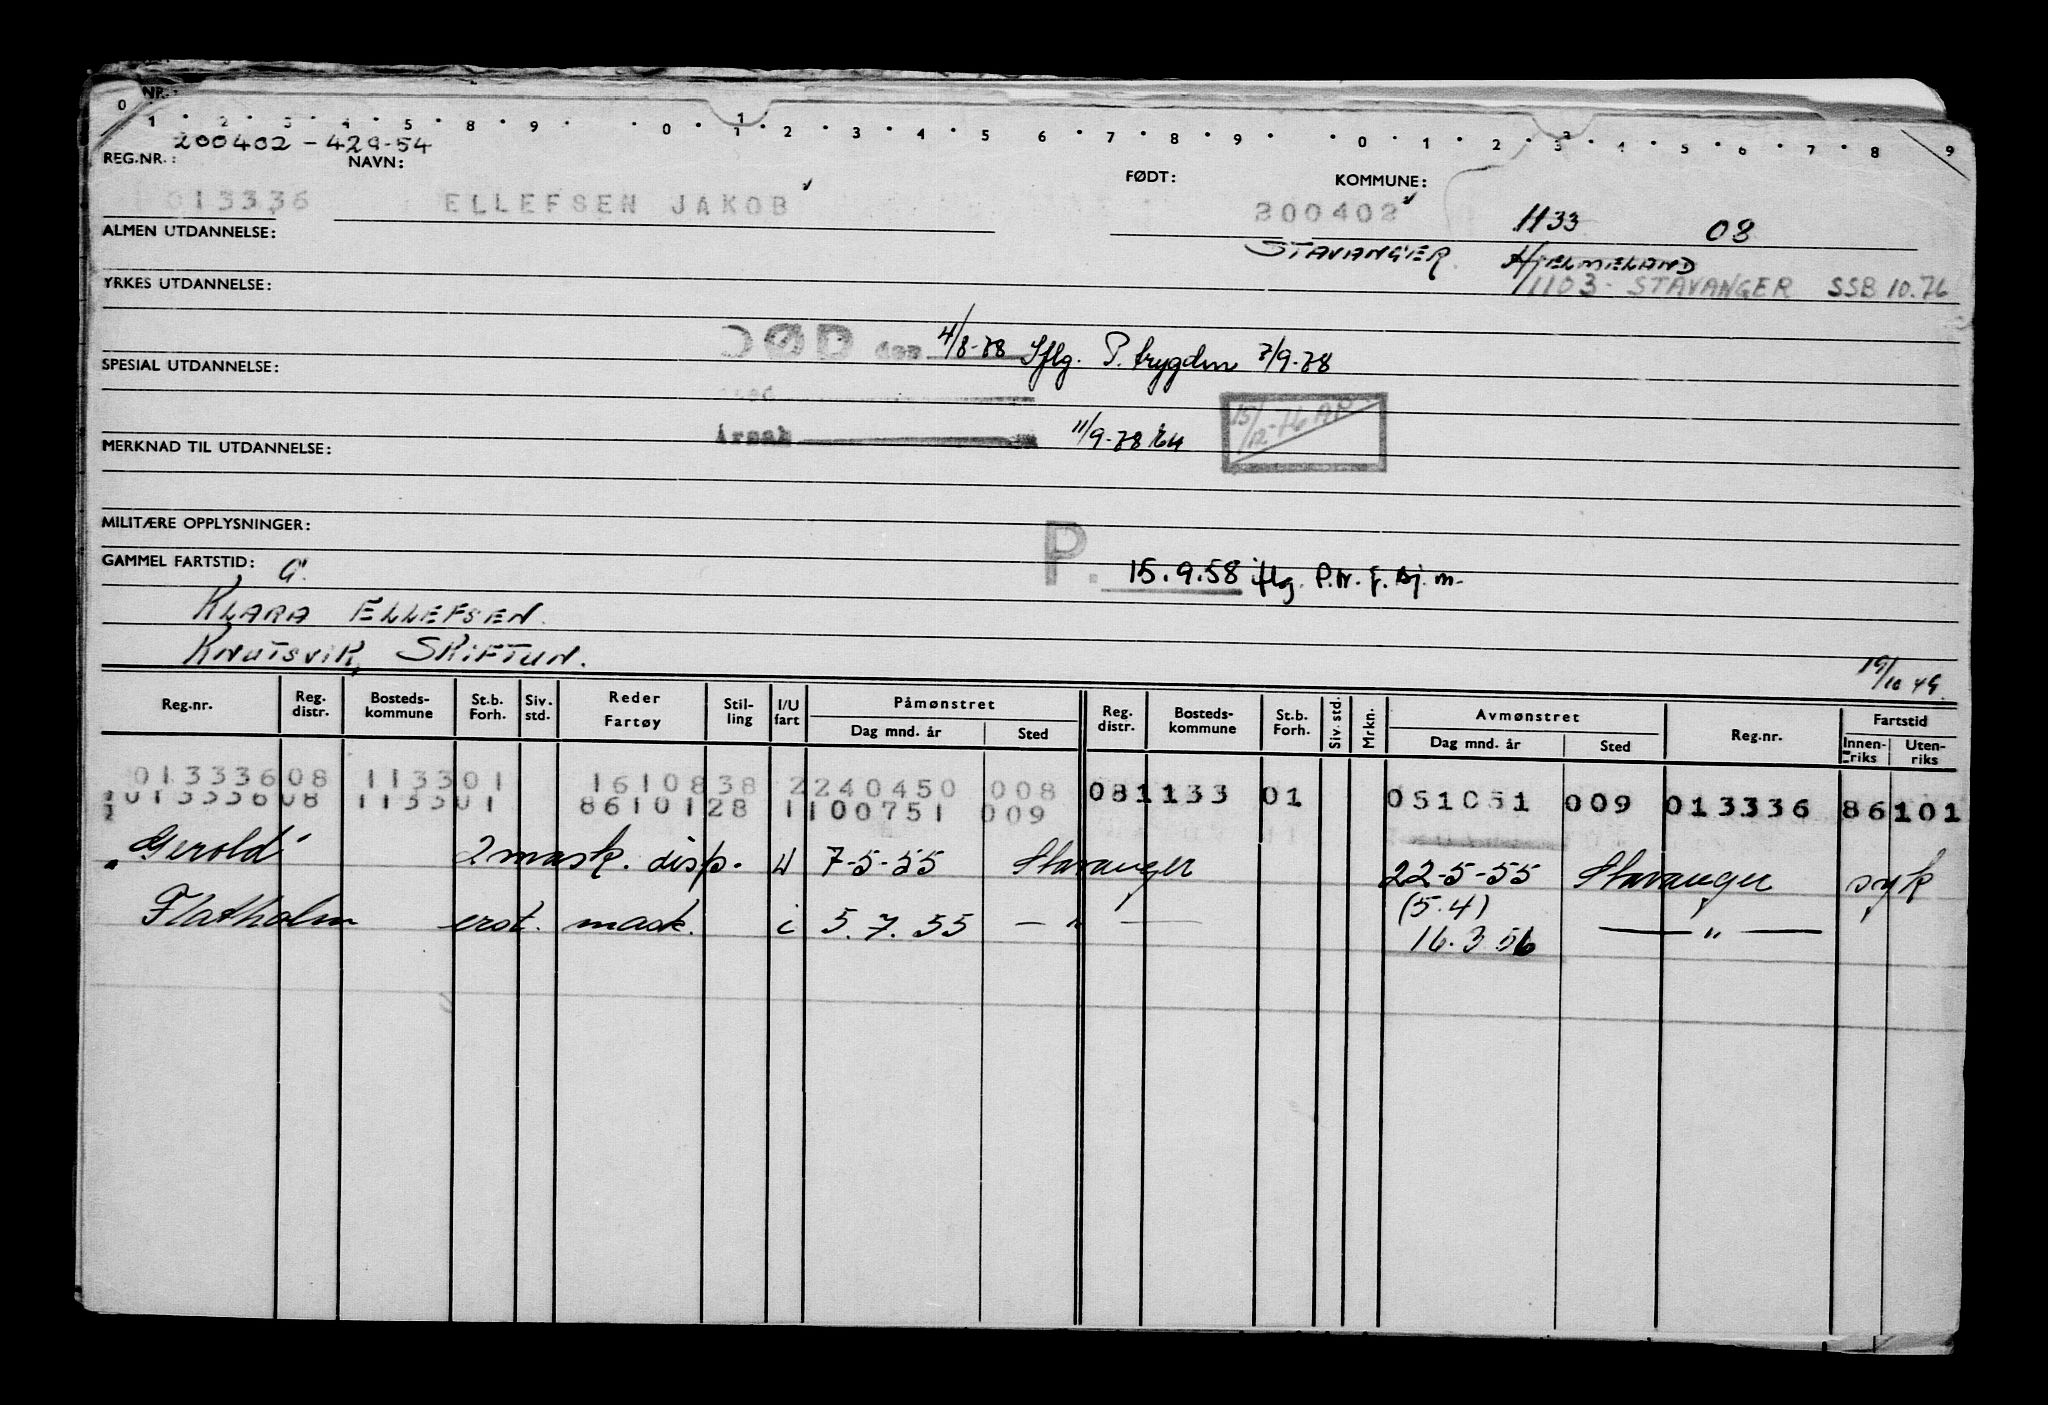 NR.:
0 1 2 3 4 5 8 9 0 1 2 3 4 5 6 7 8 9 0 1 2 3 4 5 6 7 8 9
200402-429-54
REG.NR.: NAVN: FØDT: KOMMUNE:
013336 ELLEFSEN JAKOB 200402 1133 08
ALMEN UTDANNELSE: STAVANGER. HJELMELAND
YRKES UTDANNELSE: 1103 - STAVANGER SSB 10.76
DØD den 4/8-78 Iflg. P. trygden 7/9-78
SPESIAL UTDANNELSE:
Årsak 11/9-78 15/12-76 AP
MERKNAD TIL UTDANNELSE:
MILITÆRE OPPLYSNINGER:
GAMMEL FARTSTID: G. P. 15.9.58 iflg. P.tr. f. sj.m.
KLARA ELLEFSEN.
KNUTSVIK, SKIFTUN.
19/10 49.
Reg.nr. Reg. distr. Bosteds-kommune St.b. Forh. Siv. std. Reder Fartøy Stil-ling I/U fart Påmønstret Reg. distr. Bosteds-kommune St.b. Forh. Siv. std. Mrkn. Avmønstret Reg.nr. Fartstid
Dag mnd. år Sted Dag mnd. år Sted Innen-riks Uten-riks
013336 08 1133 01 1610838 2 240450 008
013336 08 1133 01 8610128 1 100751 009 08 1133 01 051051 009 013336 86 101
Gerold 2 mask. disp. U 7-5-55 Stavanger 22-5-55 Stavanger syk
(5.4)
Flatholm erst. mask. i 5.7.55 — " — 16.3 56 — " —